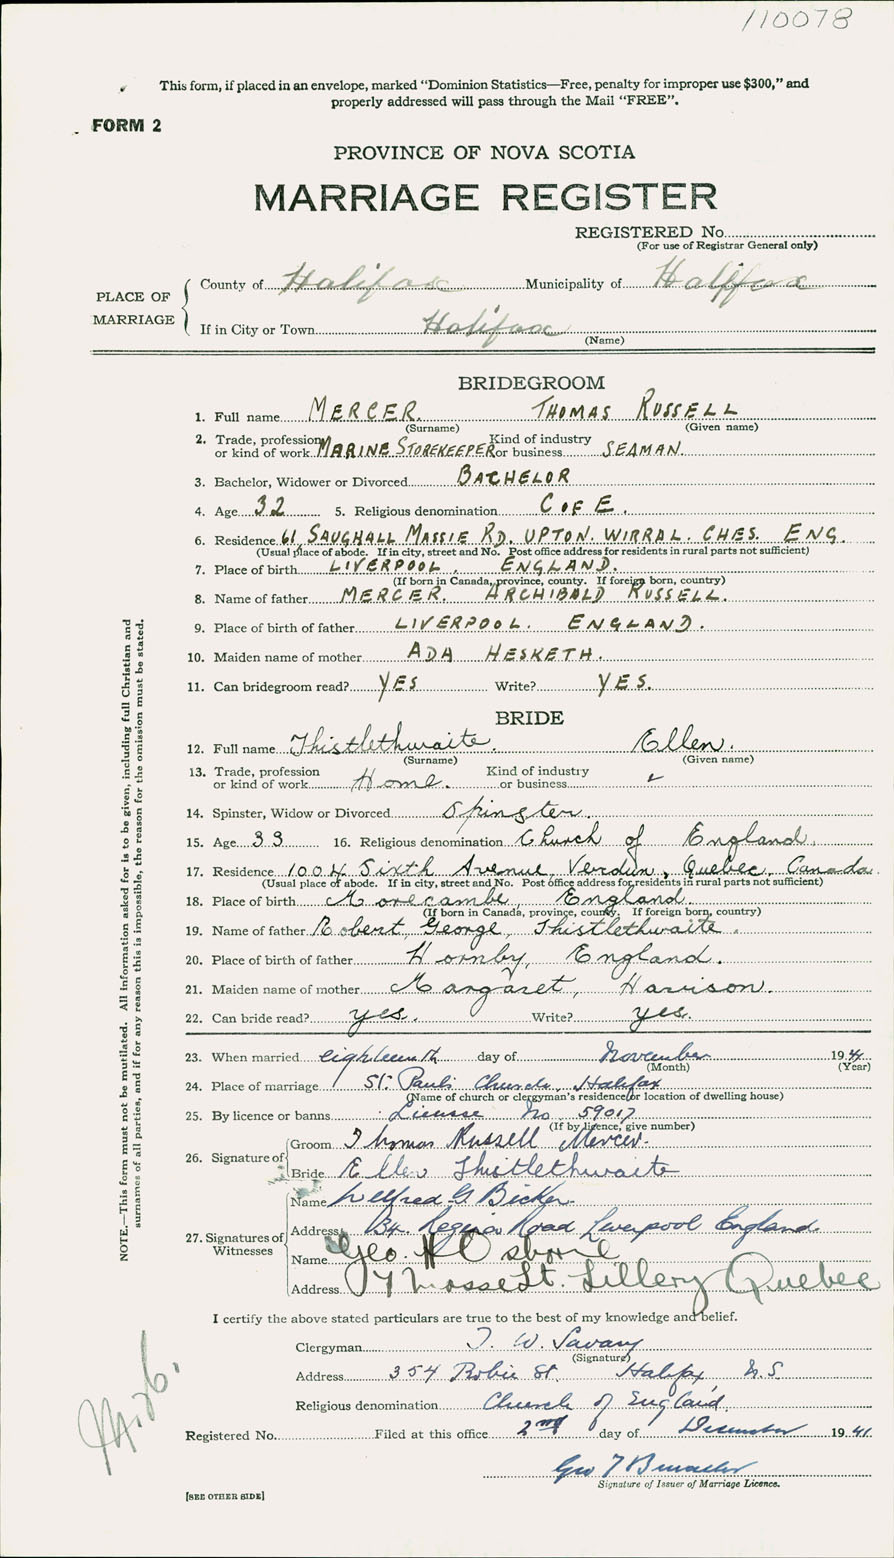 110078
This form, if placed in an envelope, marked “Dominion Statistics—Free, penalty for improper use $300,” and
properly addressed will pass through the Mail “FREE”.
FORM 2
PROVINCE OF NOVA SCOTIA
MARRIAGE REGISTER
REGISTERED No.
(For use of Registrar General only)
PLACE OF MARRIAGE
County of Halifax Municipality of Halifax
If in City or Town Halifax
(Name)
BRIDEGROOM
1. Full name MERCER. THOMAS RUSSELL
(Surname) (Given name)
2. Trade, profession or kind of work MARINE STOREKEEPER Kind of industry or business SEAMAN.
3. Bachelor, Widower or Divorced BACHELOR
4. Age 32 5. Religious denomination C of E.
6. Residence 61, SAUGHALL MASSIE RD. UPTON. WIRRAL. CHES. ENG.
(Usual place of abode. If in city, street and No. Post office address for residents in rural parts not sufficient)
7. Place of birth LIVERPOOL. ENGLAND.
(If born in Canada, province, county. If foreign born, country)
8. Name of father MERCER. ARCHIBALD RUSSELL.
9. Place of birth of father LIVERPOOL. ENGLAND.
10. Maiden name of mother ADA HESKETH.
11. Can bridegroom read? YES Write? YES.
BRIDE
12. Full name Thistlethwaite. Ellen.
(Surname) (Given name)
13. Trade, profession or kind of work Home. Kind of industry or business
14. Spinster, Widow or Divorced Spinster.
15. Age 33 16. Religious denomination Church of England.
17. Residence 1004 Sixth Avenue, Verdun, Quebec, Canada.
(Usual place of abode. If in city, street and No. Post office address for residents in rural parts not sufficient)
18. Place of birth Morecambe, England.
(If born in Canada, province, county. If foreign born, country)
19. Name of father Robert, George, Thistlethwaite.
20. Place of birth of father Hornby, England.
21. Maiden name of mother Margaret, Harrison.
22. Can bride read? yes. Write? yes.
23. When married eighteenth day of November 1941
(Month) (Year)
24. Place of marriage St. Paul's Church, Halifax
(Name of church or clergyman's residence or location of dwelling house)
25. By licence or banns License No 59017
(If by licence, give number)
26. Signature of
Groom Thomas Russell Mercer.
Bride Ellen Thistlethwaite
27. Signatures of Witnesses
Name Wilfred G. Bicker
Address 134 Regina Road Liverpool England.
Name Geo. H Osborne
Address 17 St. Quebec
I certify the above stated particulars are true to the best of my knowledge and belief.
Clergyman T. W. Savary
(Signature)
Address 354 Robie St. Halifax, N.S.
Religious denomination Church of England
Registered No. Filed at this office 2nd day of December 1941
Geo T
Signature of Issuer of Marriage Licence.
[SEE OTHER SIDE]
NOTE.—This form must not be mutilated. All information asked for is to be given, including full Christian and
surnames of all parties, and if for any reason this is impossible, the reason for the omission must be stated.